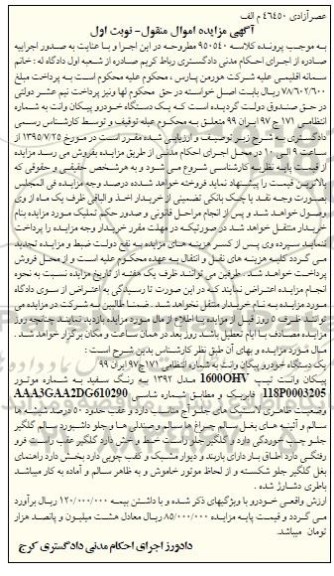 عصرآزادی ۴۶۴۵۰ م الف
آگهی مزایده اموال منقول- نوبت اول
به موجب پرونده کلاسه ۹۵۰۵۴۰ مطروحه در این اجرا و با عنایت به صدور اجراییه
صادره از اجرای احکام مدنی دادگستری رباط کریم صادره از شعبه اول دادگاه له : خانم
سمانه اقلیمی علیه شرکت هورمن پارس ، محکوم علیه محکوم است به پرداخت مبلغ
۷۸/۶۰۲/۶۰۰ ریال بابت اصل خواسته در حق محکوم لها ونیز پرداخت نیم عشر دولتی
در حق صندوق دولت گردیده است که یک دستگاه خودرو پیکان وانت به شماره
انتظامی ۱۷۱ ج ۹۷ ایران ۹۹ متعلق به محکوم عیله توقیف و توسط کارشناس رسمی
دادگستری به شرح زیر توصیف و ارزیابی شده مقرر است در مورخ ۱۳۹۵/۷/۲۵ از
ساعت ۹ الی ۱۰ در محل اجرای احکام مدنی از طریق مزایده بفروش می رسد مزایده
از قیمت پایه نظریه کارشناسی شروع می شود و به هرشخص حقیقی و حقوقی که
بالاترین قیمت را پیشنهاد نماید فروخته خواهد شدده درصد وجه مزایده فی المجلس
بصورت وجه نقد یا چک بانکی تضمینی از خریدار اخذ و الباقی ظرف یک ماه از وی
وصول خواهد شد و پس از انجام مراحل قانونی و صدور حکم تملیک مورد مزایده بنام
خریدار منتقل خواهد شد در صورتیکه در مهلت مقرر خریدار وجه مزایده را پرداخت
ننماید سپرده وی پس از کسر هزینه های مزایده به نفع دولت ضبط و مزایده تجدید
می گردد کلیه هزینه های نقل و انتقال به عهده محکوم علیه است و از محل فروش
پرداخت خواهد شد. طرفین می توانند ظرف یک هفته از تاریخ مزایده نسبت به نحوه
انجام مزایده اعتراض نمایند که در این صورت تا رسیدگی به اعتراض از سوی دادگاه
مورد مزایده به نام خریدار منتقل نخواهد شد . ضمنا طالبین به شرکت در مزایده می
توانند ظرف ۵ روز قبل از مزایده با اطلاع از مال مورد مزایده بازدید نمایند چنانچه روز
مزایده مصادف با ایام تعطیل باشد روز بعد در همان ساعت و مکان برگزار خواهد شد .
مال مورد مزایده و بهای آن طبق نظر کارشناس بدین شرح است :
یک دستگاه خودرو پیکان وانت به شماره انتظامی ۱۷۱ ج ۹۷ ایران ۹۹
پیکان وانت تیپ 1600OHV مدل ۱۳۹۲ به رنگ سفید به شماره موتور
118P0003205 فابریک و مطابق شماره شاسی AAA3GAA2DG610290
وضعیت ظاهری لاستیک های جلو آج مناسب دارد و عقب حدود ۵۰ درصد شیشه ها
سالم و آئینه های بغل سالم چراغ ها سالم وصندلی ها و جلو داشبورد سالم گلگیر
جلو چپ خوردگی دارد و گلگیر جلو راست خط و خش دارد گلگیر عقب راست فرو
رفتگی دارد اطاق بار دارای باربند و دیوار مشبک و کف چوبی دارد بخش دارد راهنمای
بغل گلگیر جلو شکسته و از لحاظ موتور خاموش و به ظاهر سالم و آماده به کار میباشد
باطری دشارژ شده .
ارزش واقعی خودرو با ویژگیهای ذکر شده و با داشتن بیمه ۱۲۰/۰۰۰/۰۰۰ ریال برآورد
می گردد و قیمت پایه مزایده ۸۵/۰۰۰/۰۰۰ ریال معادل هشت میلیون و پانصد هزار
تومان میباشد.
دادورز اجرای احکام مدنی دادگستری کرج